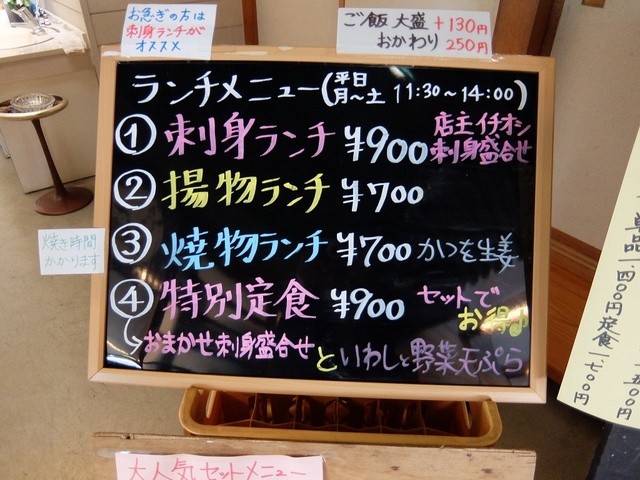 お急ぎの方は
刺身ランチが
オススメ
ご飯 大盛 +130円
おかわり 250円
ランチメニュー(平日 月〜土 11:30〜14:00)
① 刺身ランチ ¥900 店主イチオシ 刺身盛合せ
② 揚物ランチ ¥700
焼き時間
かかります
③ 焼物ランチ ¥700 かつを生姜
④ 特別定食 ¥900 セットで お得♪
おまかせ刺身盛合せ と いわしと野菜天ぷら
大人気セットメニュー
単品一、四〇〇円定食一、七〇〇円